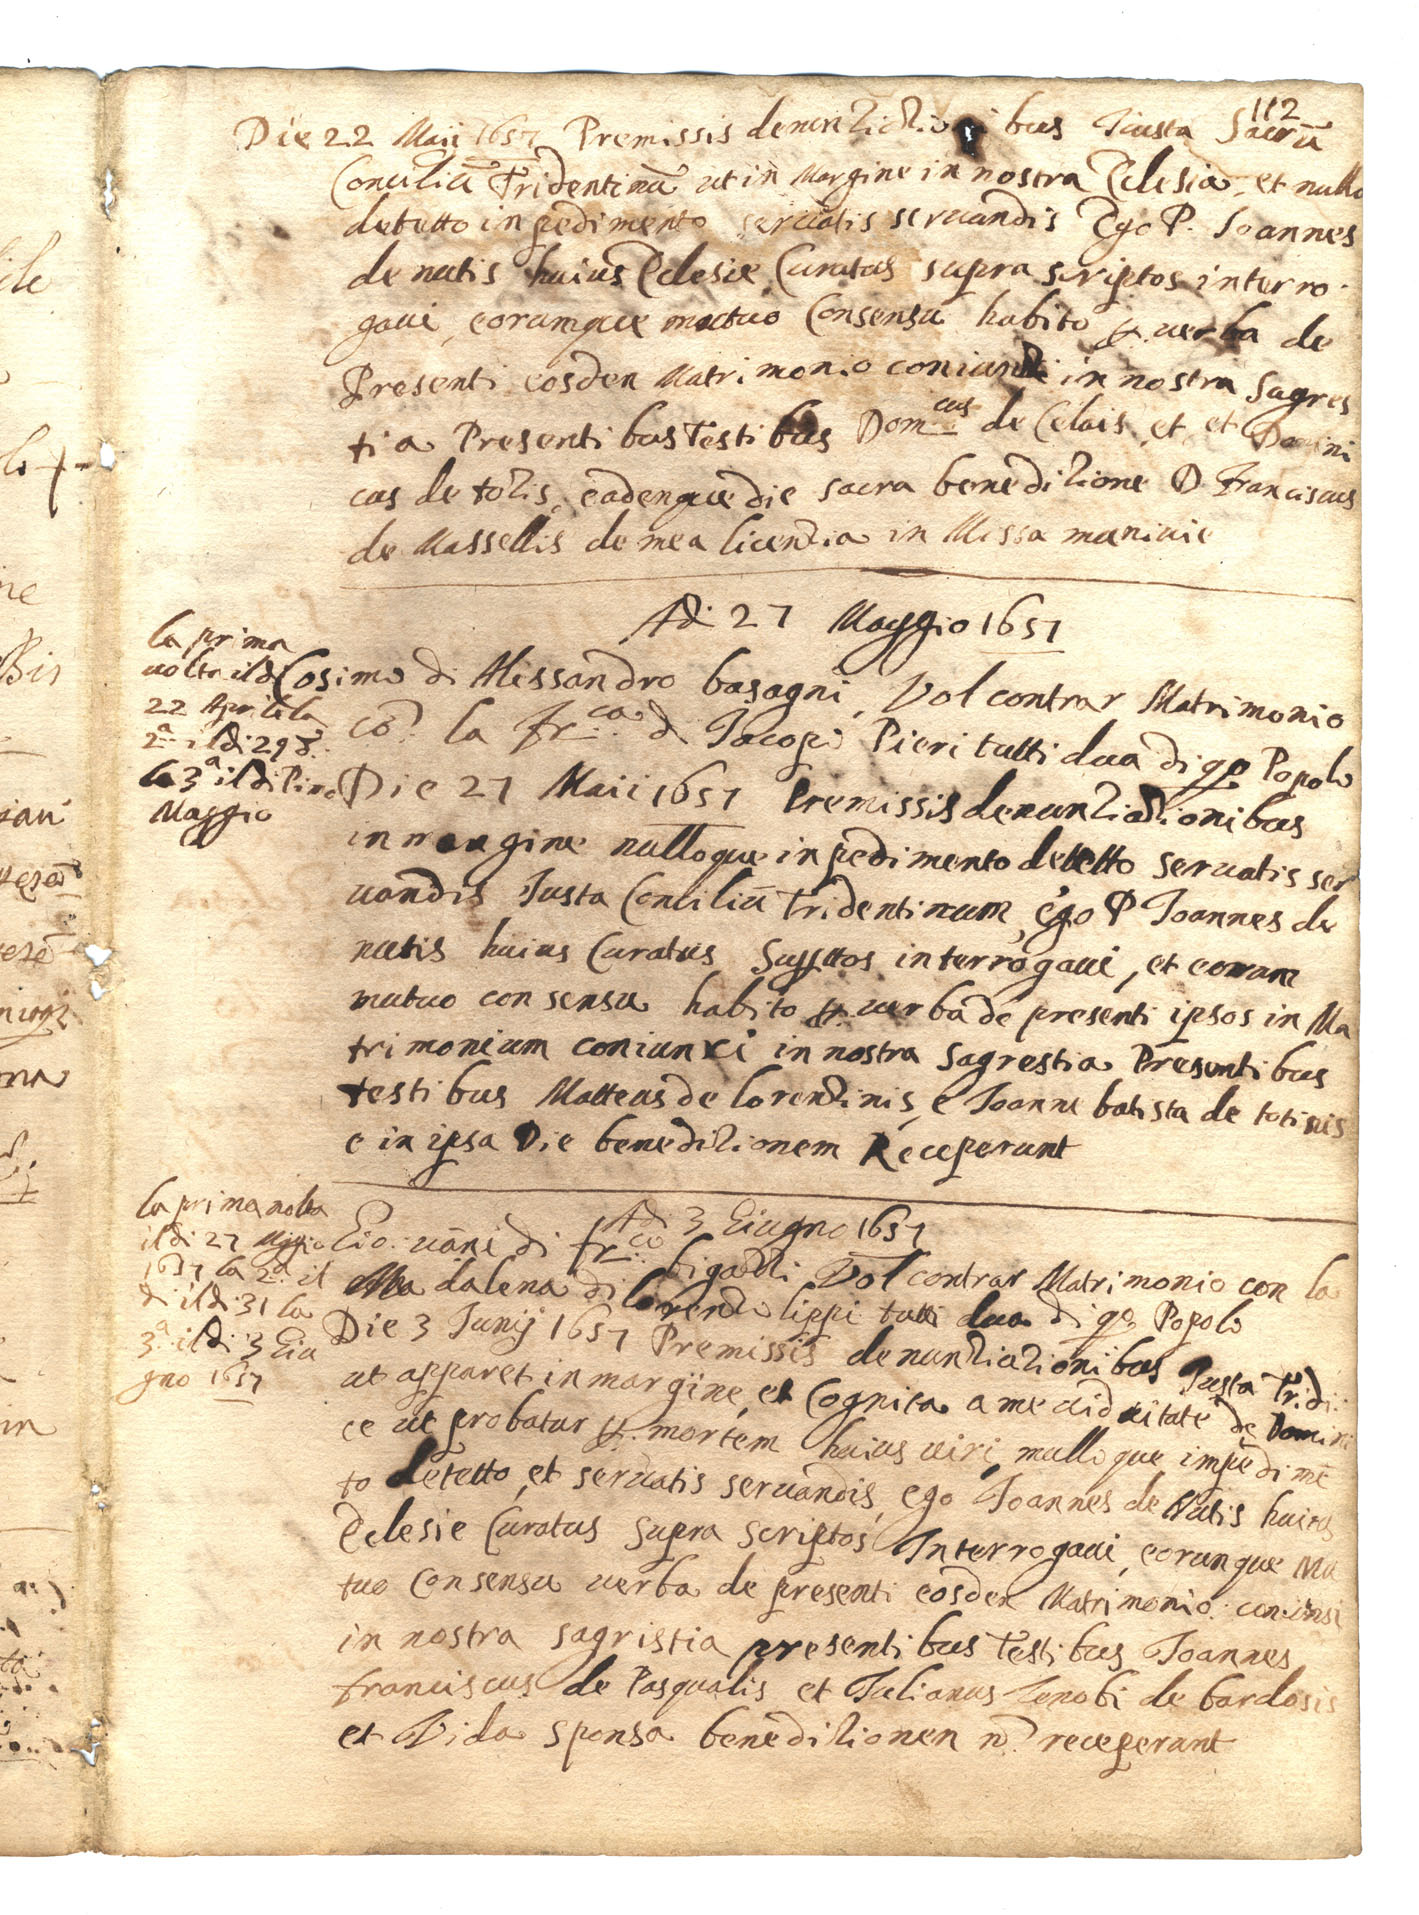 112
Die 22 Maii 1657 Premissis denuntiationibus Iusta Sacrū
Conciliū Tridentinū ut in Margine in nostra Eclesia, et nullo
detetto inpedimento servatis servandis Ego P. Ioannes
de nutis huius Eclesie Curatus supra scriptos interro-
gaui, eorumque mutuo Consensu habito p. uerba de
Presenti eosden Matrimonio coniunxi in nostra Sagres
tia Presentibus testibus Dom.cus de Celais, et et Domini
cus de totis, eadenque die sacra beneditione D. Franciscus
de Massellis de mea licentia in Missa muniuie
Adi 27 Maggio 1657
la prima
uolta il di
22 Aprile la
2.a il di 29 d.
la 3.a il di Pimo
Maggio
Cosimo di Alessandro basagni, Vol contrar Matrimonio
cō la fr.ca di Iacopo Pieri tutti dua di qo Popolo
Die 27 Maii 1657 Premissis denuntiationibus
in margine nulloque inpedimento detetto servatis ser
uandis Iusta Conciliū Tridentinum, ego P Ioannes de
nutis huius Curatus Suppttos interrogaui, et eorum
mutuo consensu habito p. uerba de presenti ipsos in Ma
trimonium coniunxi in nostra sagrestia Presentibus
testibus Matteus de lorentinis, e Ioanne batista de totinis
e in ipsa Die beneditionem Receperunt
Adi 3 Giugno 1657
la prima uolta
il di 27 Maggio
1657 la 2.a il
di il di 31 la
3.a il di 3 Giu
gno 1657
Gio: uāni di fr.co bigatti Vol contrar Matrimonio con la
Madalena di lorenzo lippi tutti dua di qo Popolo
Die 3 Iunij 1657 Premissis denuntiationibus Iusta Trid:
ut apparet in margine, et Cognita a me uiduitate de Domini
ce ut probatur p. mortem huius uiri, nulloque impedimē
to detetto, et servatis servandis, ego Ioannes de Nutis huius
Eclesie Curatus supra scriptos Interrogaui, eorunque Mu
tuo Consensu uerba de presenti eosden Matrimonio coniunsi
in nostra sagristia presentibus testibus Ioannes
franciscus de Pasqualis et Iulianus Zenobi de bardosis
et Vida sponsa beneditionen nō receperunt